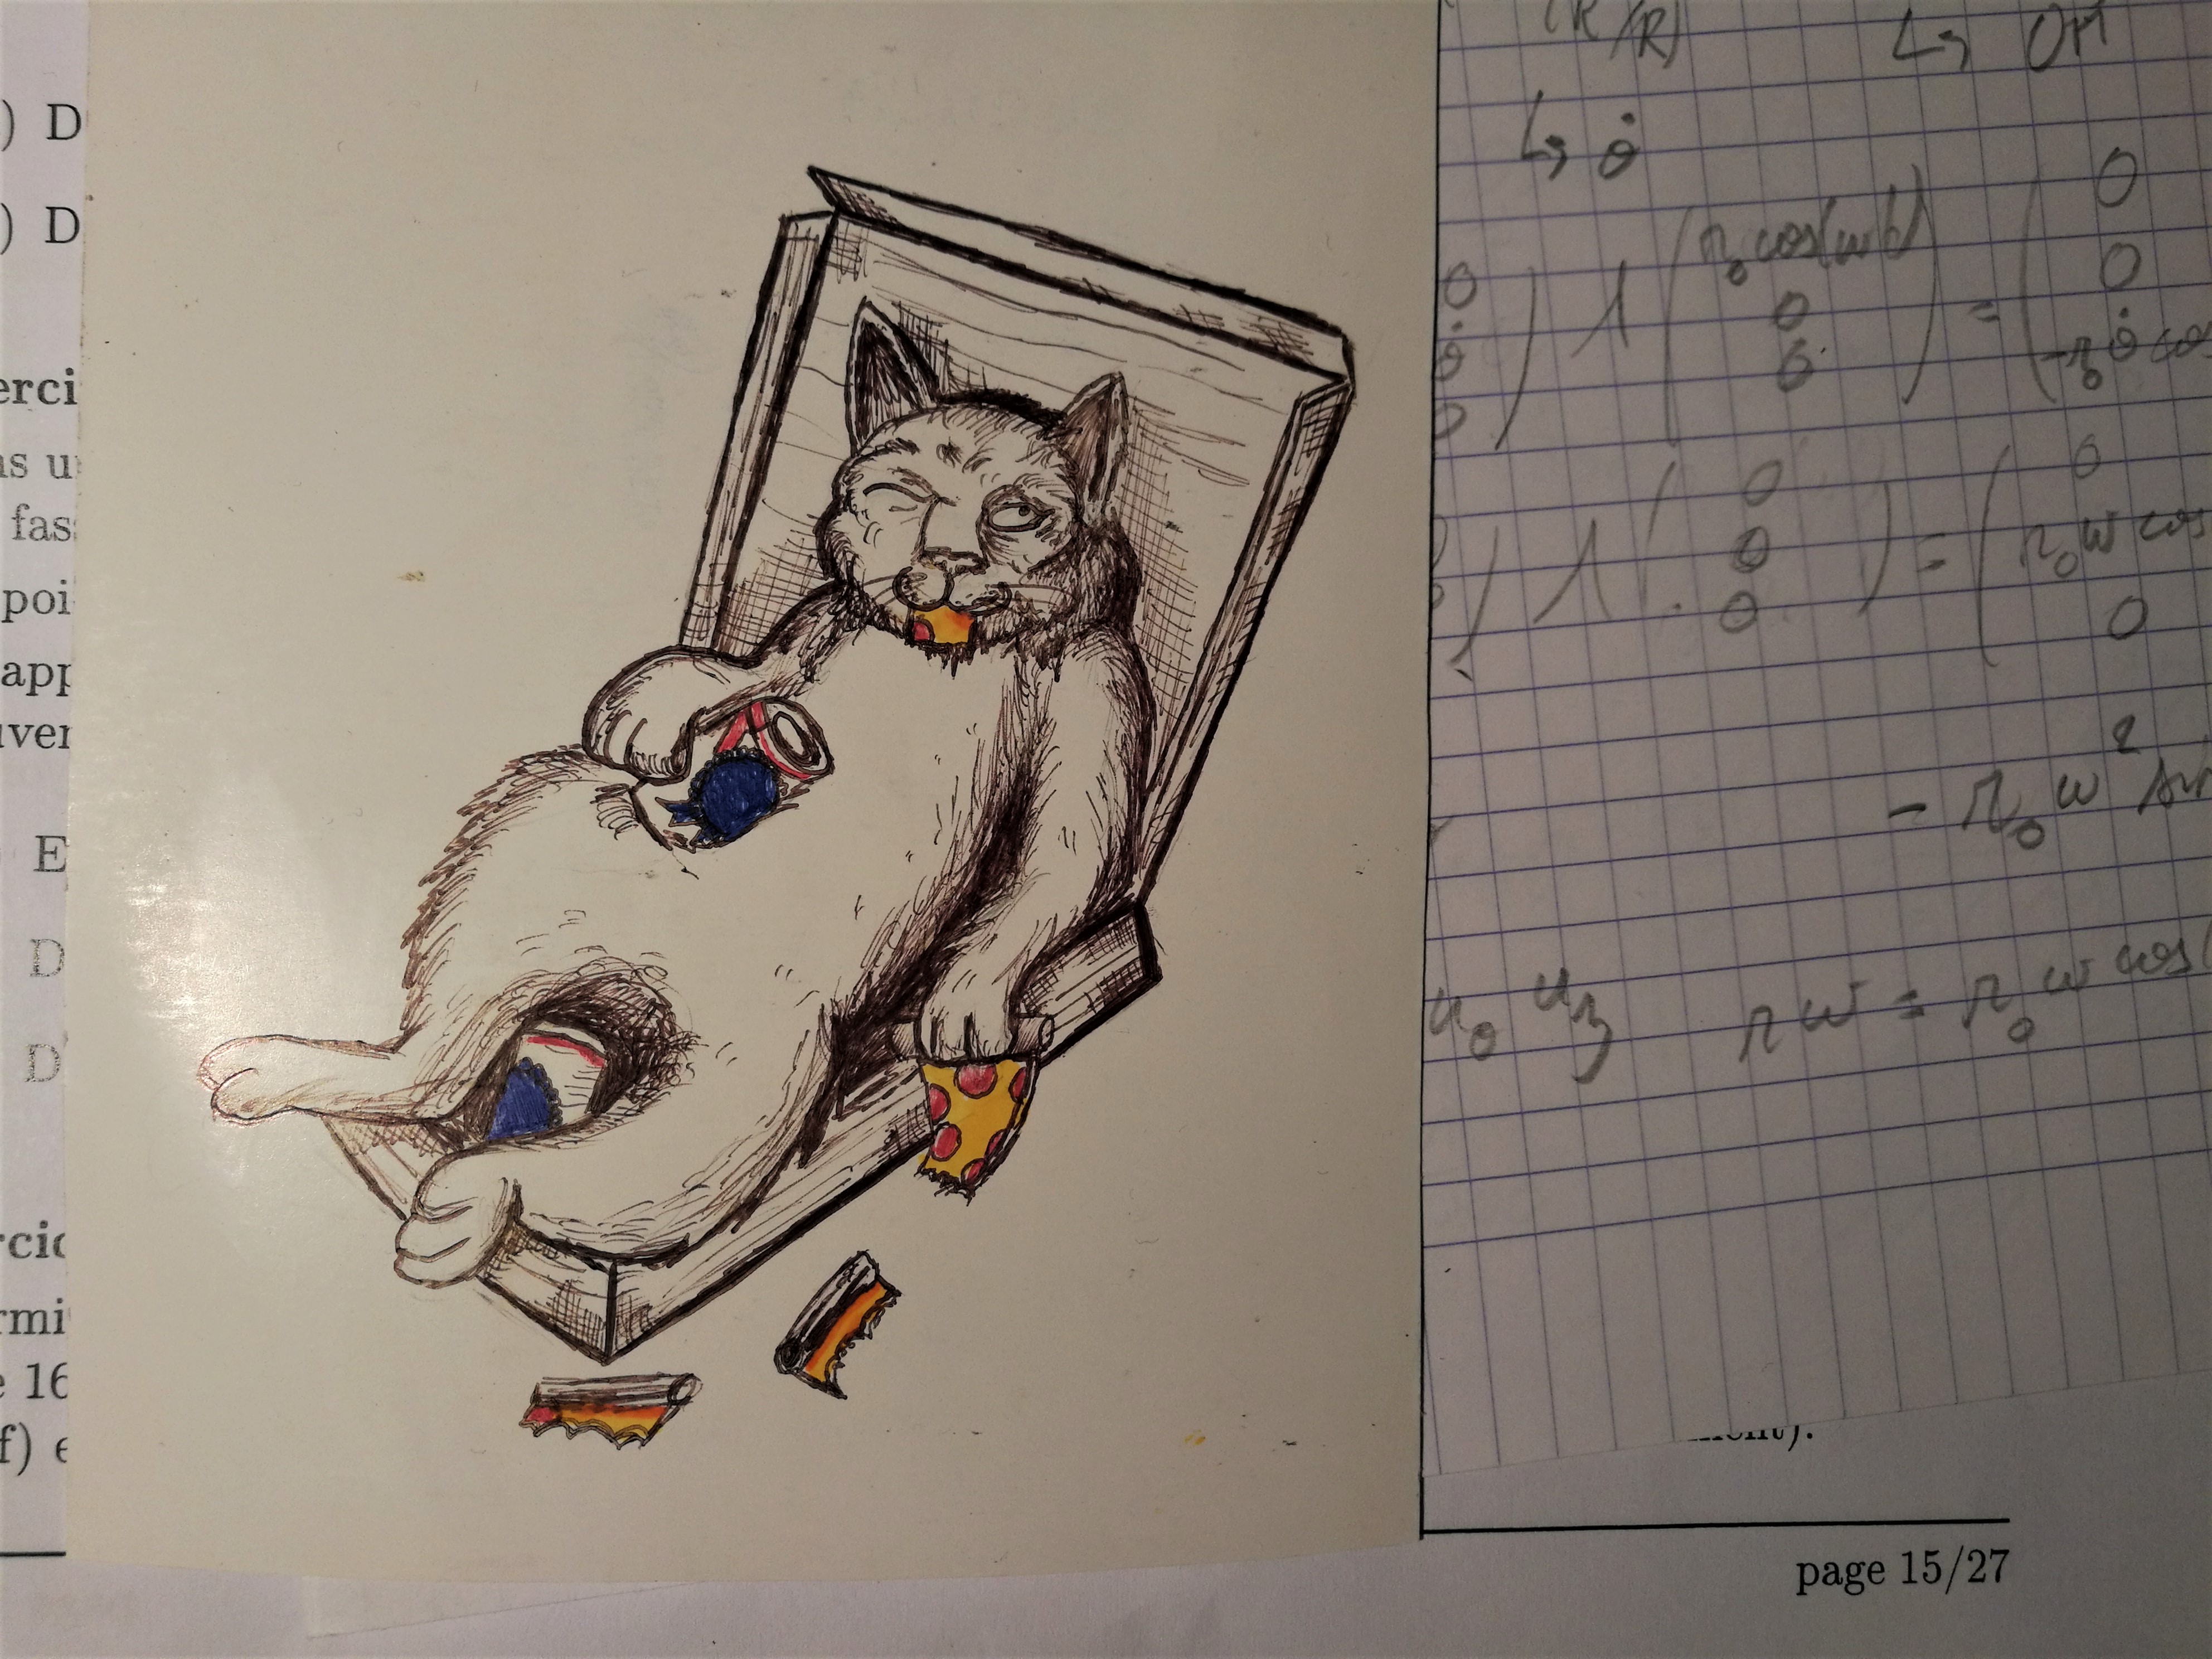 ) D
) D
erci
fass
poi
app
uver
E
D
D
rcic
rmi
e 16
f) e
(R/R)
↳ OM
↳ θ̇
0
θ̇
0
∧
r₀ cos(ωt)
0
0
=
0
0
-r₀ θ̇ cos
∧
0
0
0
=
0
r₀ ω cos
0
- r₀ ω² sin
rω = r₀ ω cos(
ment).
page 15/27